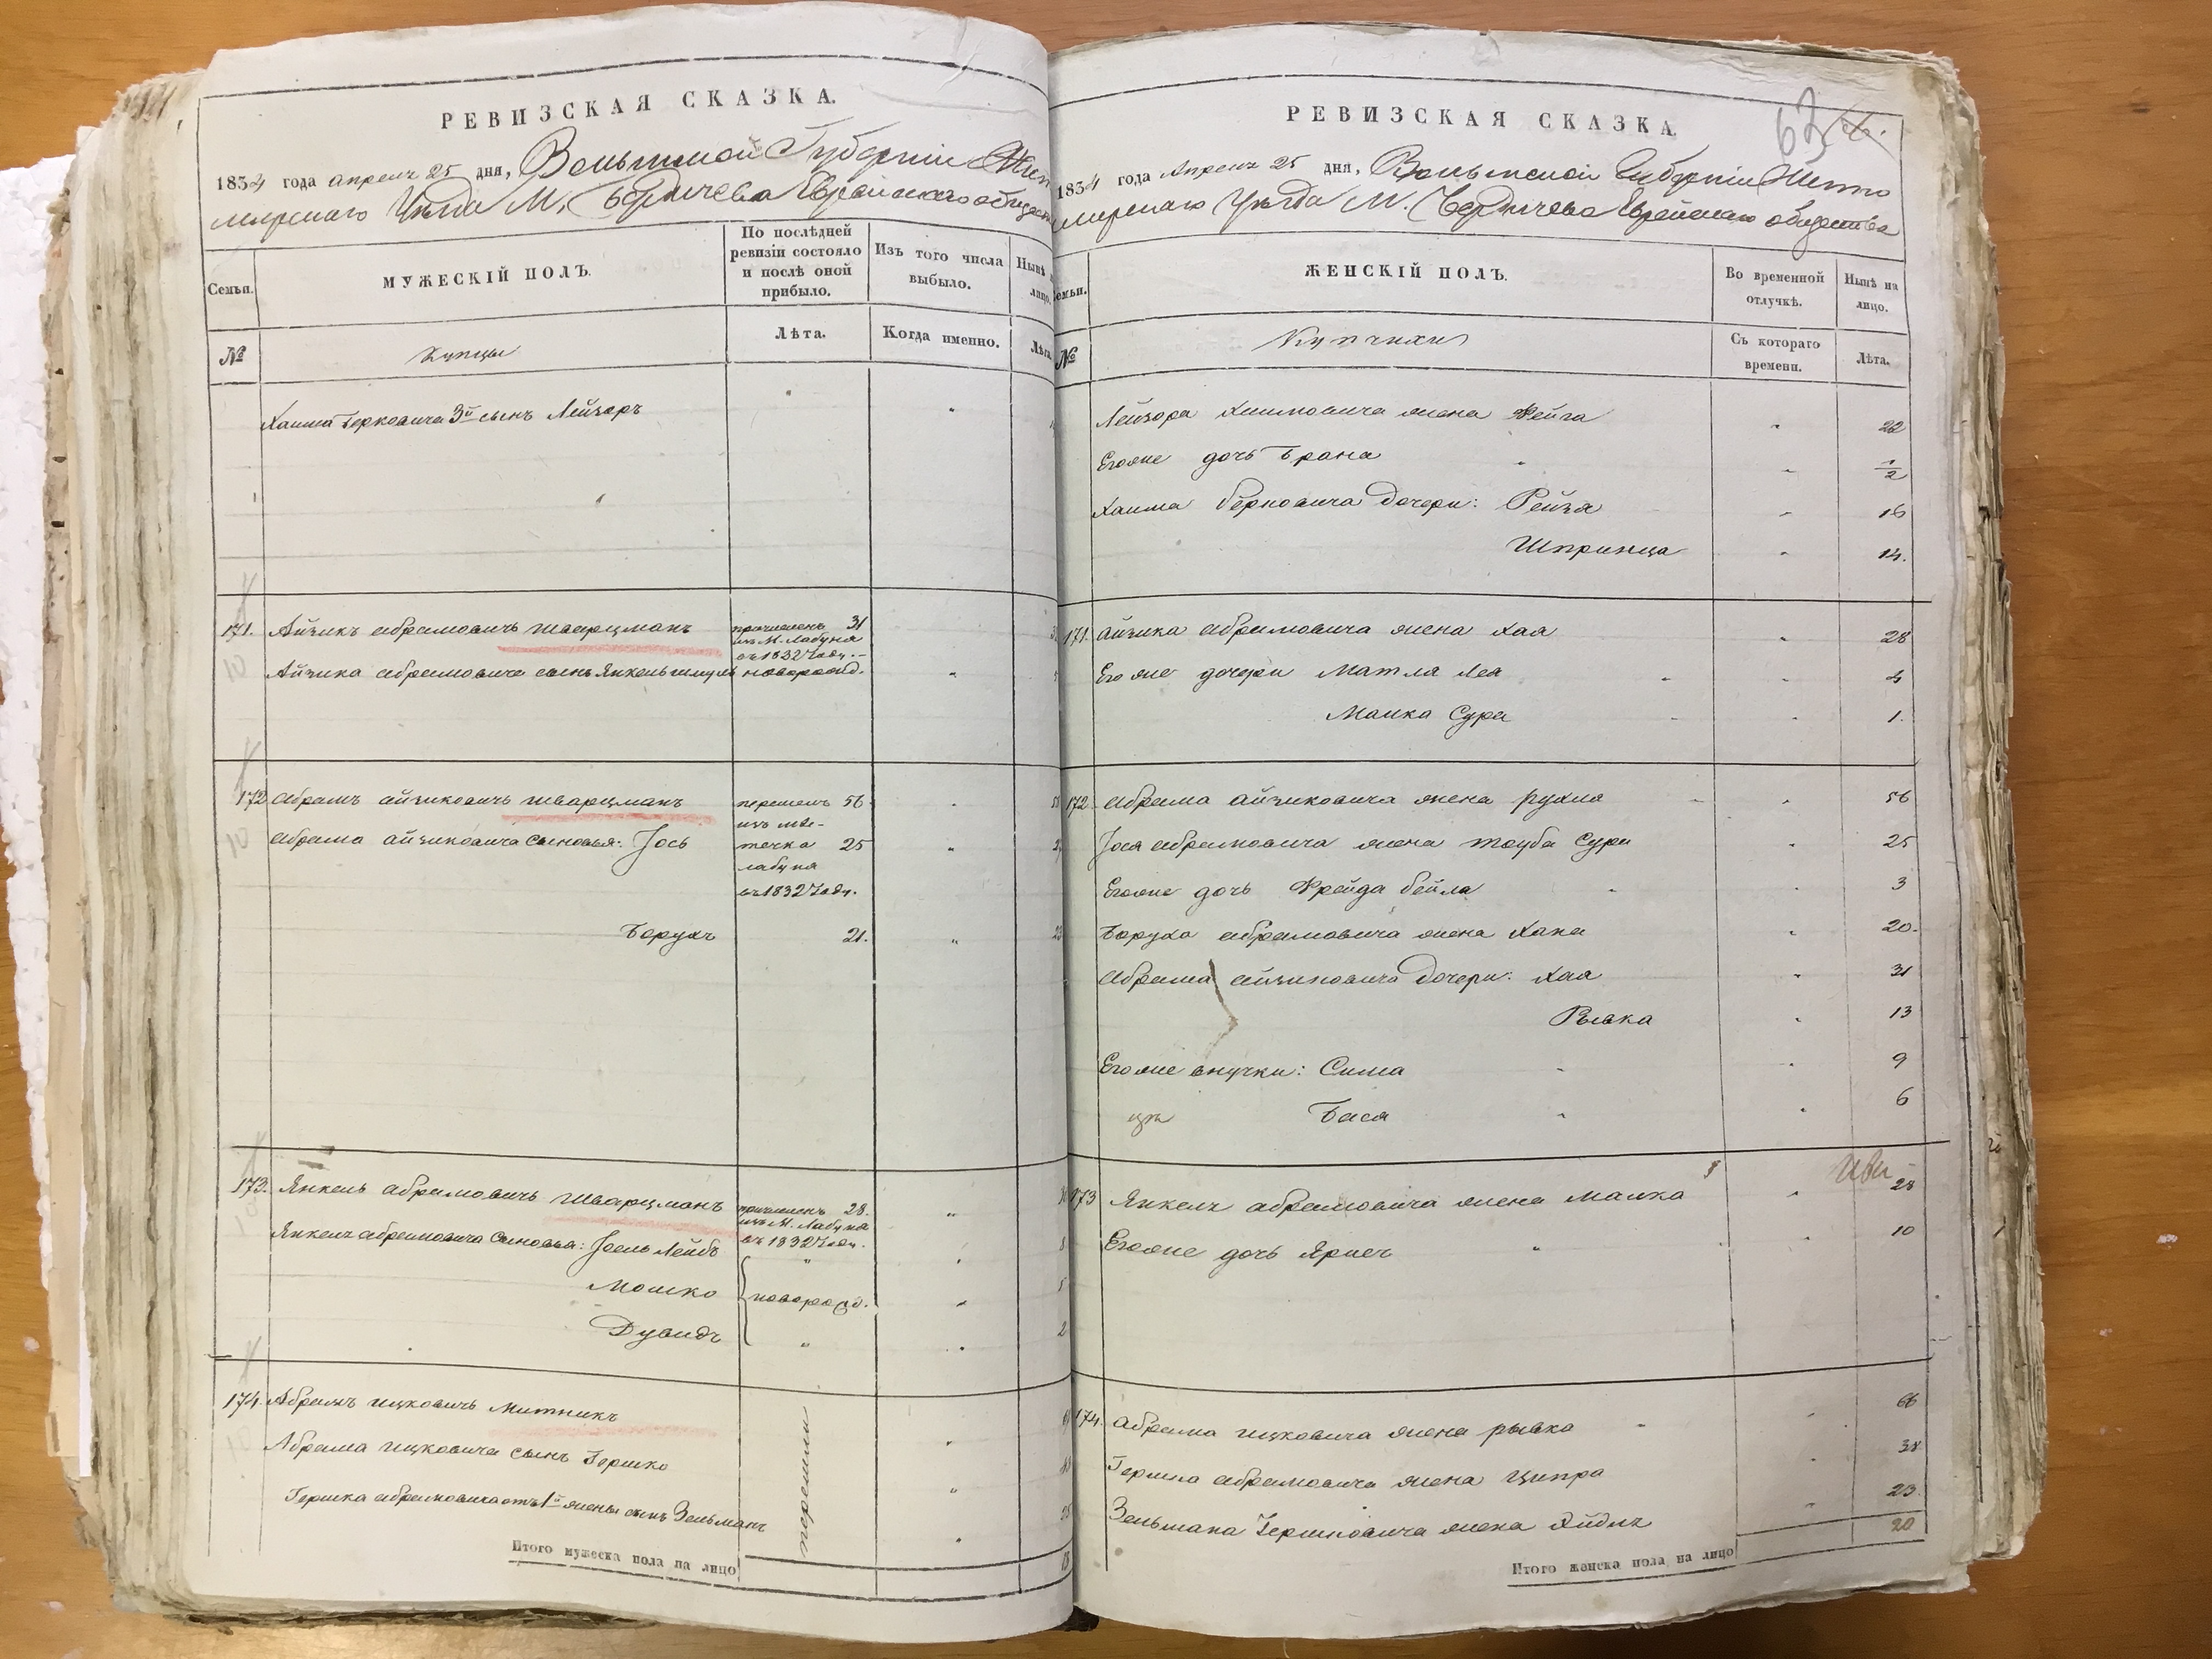 РЕВИЗСКАЯ СКАЗКА.
1834 года апреля 25 дня, Волынской Губернiи Жит
мирскаго Уѣзда М. Бердичева Еврейскаго общест
Семьи.
МУЖЕСКIЙ ПОЛЪ.
По послѣдней ревизiи состояло и послѣ оной прибыло.
Изъ того числа выбыло.
Нынѣ
лицо.
№
Купцы
Лѣта.
Когда именно.
Лѣта
Хаима Берковича 3й сынъ Лейзоръ
171. Айзикъ абрамовичъ шварцманъ
причисленъ 31
изъ М. Лабуня
въ 1832 году.
Айзика абрамовича сынъ Янкель шмуль новорожд.
172 абрамъ айзиковичъ шварцманъ
перешелъ 56
изъ мѣс-
абрама айзиковича сыновья: Iось
течка 25
лабуня
въ 1832 году.
Борухъ 21.
173. Янкель абрамовичъ шварцманъ
причисленъ 28.
изъ М. Лабуня
въ 1832 году.
Янкеля абрамовича сыновья: Iосль Лейбъ
Мошко новорожд.
Дувидъ 2
174. Абрамъ ицковичъ митникъ
Абрама ицковича сынъ Гершко
перешли
Гершка абрамовича отъ 1й жены сынъ Зельманъ
Итого мужеска пола на лицо
РЕВИЗСКАЯ СКАЗКА.
63
1834 года Апреля 25 дня, Волынской Губернiи Жито
мирскаго Уѣзда М. Бердичева Еврейскаго общества
Семьи.
ЖЕНСКIЙ ПОЛЪ.
Во временной отлучкѣ.
Нынѣ на лицо.
№
Купчихи
Съ котораго времени.
Лѣта.
Лейзора Хаимовича жена Фейга 22
Егоже дочь Брана 1/2
Хаима Берковича дочери: Рейза 16
Шпринца 14.
171. айзика абрамовича жена хая 28
Егоже дочери Матля Лея 4
Малка Сура 1.
172. абрама айзиковича жена рухля 56
Iося абрамовича жена тауба Сура 25
Егоже дочь Фрейда бейла 3
Боруха абрамовича жена хана 20.
абрама айзиковича дочери: хая 31
Рывка 13
Егоже внучки: Сима 9
Бася 6
173 Янкеля абрамовича жена малка 28
Егоже дочь Ярма 10
174. абрама ицковича жена рывка 66
Гершка абрамовича жена ципра 38
Зельмана Гершковича жена Эйдля 23.
Итого женска пола на лицо 20